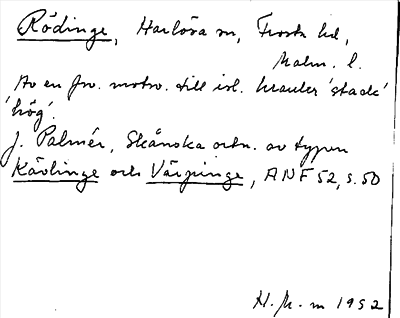 Rödinge, Harlösa sn, Frosta hd,
Malm. l.
Av en fsv. motsv. till isl. hrauker 'stack'
'hög'.
J. Palmér, Skånska ortn. av typen
Kävlinge och Värpinge, ANF 52, s. 50
H. M-m 1952